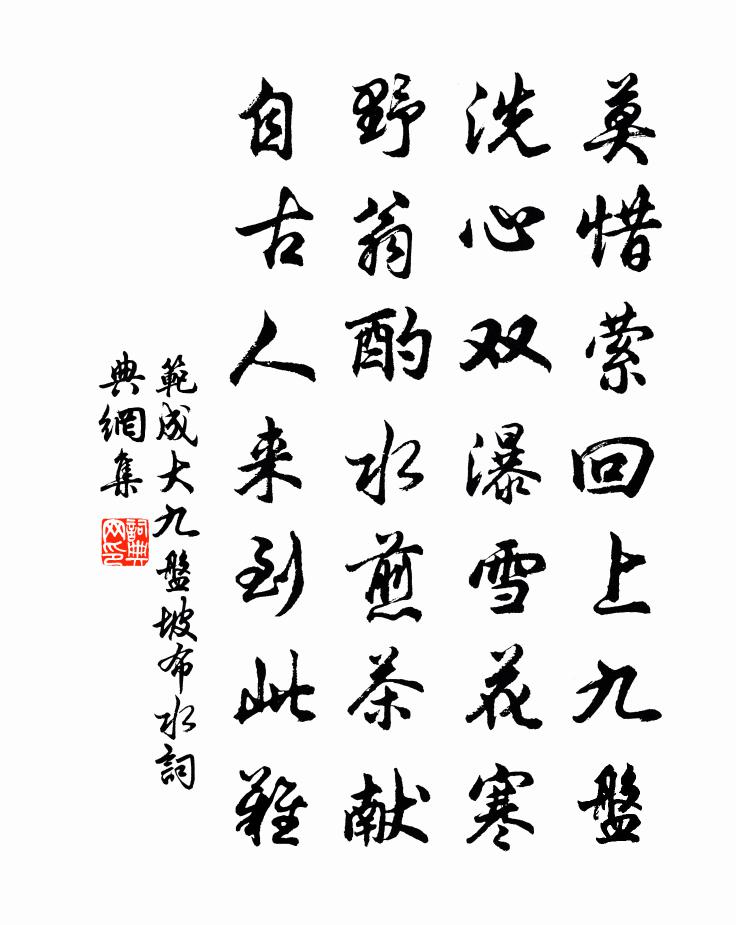 莫惜萦回上九盤
洗心双瀑雪花寒
野翁酌水煎茶献
自古人来到此難
範成大九盤坡布水詞
典網集
詞典
网印